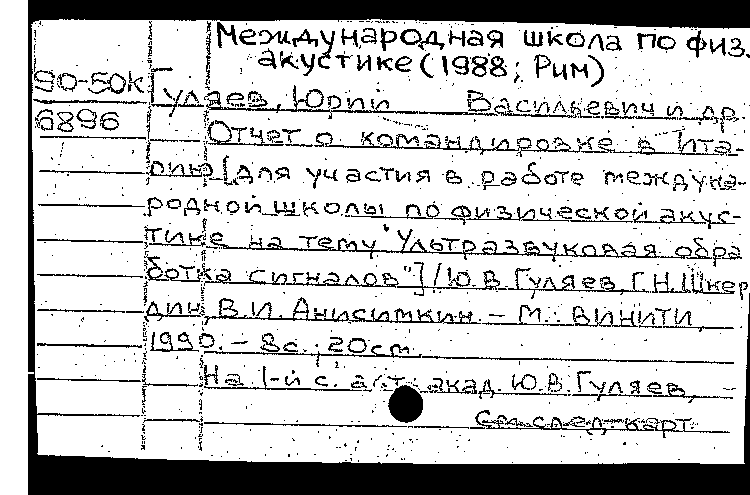 Международная школа по физ.
акустике (1988; Рим)
90-50К Гуляев, Юрий Васильевич и др.
6896 Отчет о командировке в Ита-
лию [для участия в работе междуна-
родной школы по физической акус-
тике на тему "Ультразвуковая обра
ботка сигналов"] / Ю.В. Гуляев, Г.Н. Шкер
дин, В.И. Анисимкин. - М.: ВИНИТИ,
1990. - 8с.; 20см.
На 1-й с. авт.: акад. Ю.В. Гуляев, -
См. след. карт.